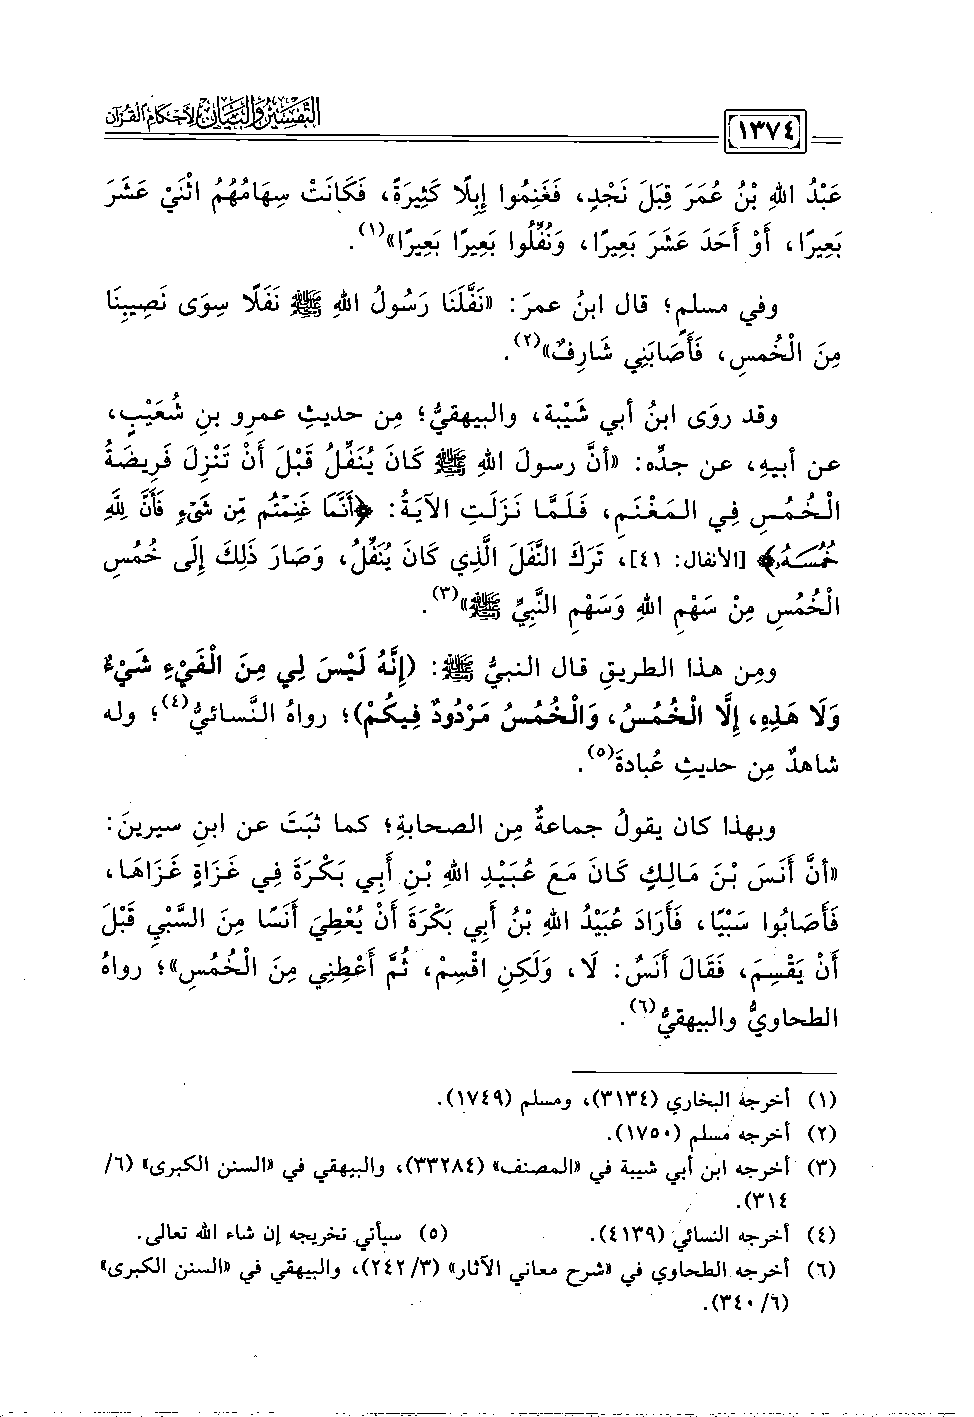 ١٣٧٤ التفسير والبيان لأحكام القرآن
عَبْدُ اللهِ بْنُ عُمَرَ قِبَلَ نَجْدٍ، فَغَنِمُوا إِبِلًا كَثِيرَةً، فَكَانَتْ سِهَامُهُمُ اثْنَيْ عَشَرَ
بَعِيرًا، أَوْ أَحَدَ عَشَرَ بَعِيرًا، وَنُفِّلُوا بَعِيرًا بَعِيرًا»(١).
وفي مسلم؛ قال ابنُ عمرَ: «نَفَّلَنَا رَسُولُ اللهِ ﷺ نَفَلًا سِوَى نَصِيبِنَا
مِنَ الْخُمسِ، فَأَصَابَنِي شَارِفٌ»(٢).
وقد روَى ابنُ أبي شَيْبة، والبيهقيُّ؛ مِن حديثِ عمرِو بنِ شُعَيْبٍ،
عن أبيهِ، عن جدِّه: «أنَّ رسولَ اللهِ ﷺ كَانَ يُنَفِّلُ قَبْلَ أَنْ تَنْزِلَ فَرِيضَةُ
الْخُمُسِ فِي المَغْنَمِ، فَلَمَّا نَزَلَتِ الآيَةُ: ﴿أَنَّمَا غَنِمْتُم مِّن شَىْءٍ فَأَنَّ لِلَّهِ
خُمُسَهُۥ﴾ [الأنفال: ٤١]، تَرَكَ النَّفَلَ الَّذِي كَانَ يُنَفِّلُ، وَصَارَ ذَلِكَ إِلَى خُمُسِ
الْخُمُسِ مِنْ سَهْمِ اللهِ وَسَهْمِ النَّبِيِّ ﷺ»(٣).
ومِن هذا الطريقِ قال النبيُّ ﷺ: (إِنَّهُ لَيْسَ لِي مِنَ الْفَيْءِ شَيْءٌ
وَلَا هَذِهِ، إِلَّا الْخُمُسُ، وَالْخُمُسُ مَرْدُودٌ فِيكُمْ)؛ رواهُ النَّسائيُّ(٤)؛ وله
شاهدٌ مِن حديثِ عُبادةَ(٥).
وبهذا كان يقولُ جماعةٌ مِن الصحابةِ؛ كما ثبَتَ عن ابنِ سيرينَ:
«أنَّ أَنَسَ بْنَ مَالِكٍ كَانَ مَعَ عُبَيْدِ اللهِ بْنِ أَبِي بَكْرَةَ فِي غَزَاةٍ غَزَاهَا،
فَأَصَابُوا سَبْيًا، فَأَرَادَ عُبَيْدُ اللهِ بْنُ أَبِي بَكْرَةَ أَنْ يُعْطِيَ أَنَسًا مِنَ السَّبْيِ قَبْلَ
أَنْ يَقْسِمَ، فَقَالَ أَنَسٌ: لَا، وَلَكِنِ اقْسِمْ، ثُمَّ أَعْطِنِي مِنَ الْخُمُسِ»؛ رواهُ
الطحاويُّ والبيهقيُّ(٦).
(١) أخرجه البخاري (٣١٣٤)، ومسلم (١٧٤٩).
(٢) أخرجه مسلم (١٧٥٠).
(٣) أخرجه ابن أبي شيبة في «المصنف» (٣٣٢٨٤)، والبيهقي في «السنن الكبرى» (٦/
٣١٤).
(٤) أخرجه النسائي (٤١٣٩). (٥) سيأتي تخريجه إن شاء الله تعالى.
(٦) أخرجه الطحاوي في «شرح معاني الآثار» (٣/ ٢٤٢)، والبيهقي في «السنن الكبرى»
(٦/ ٣٤٠).